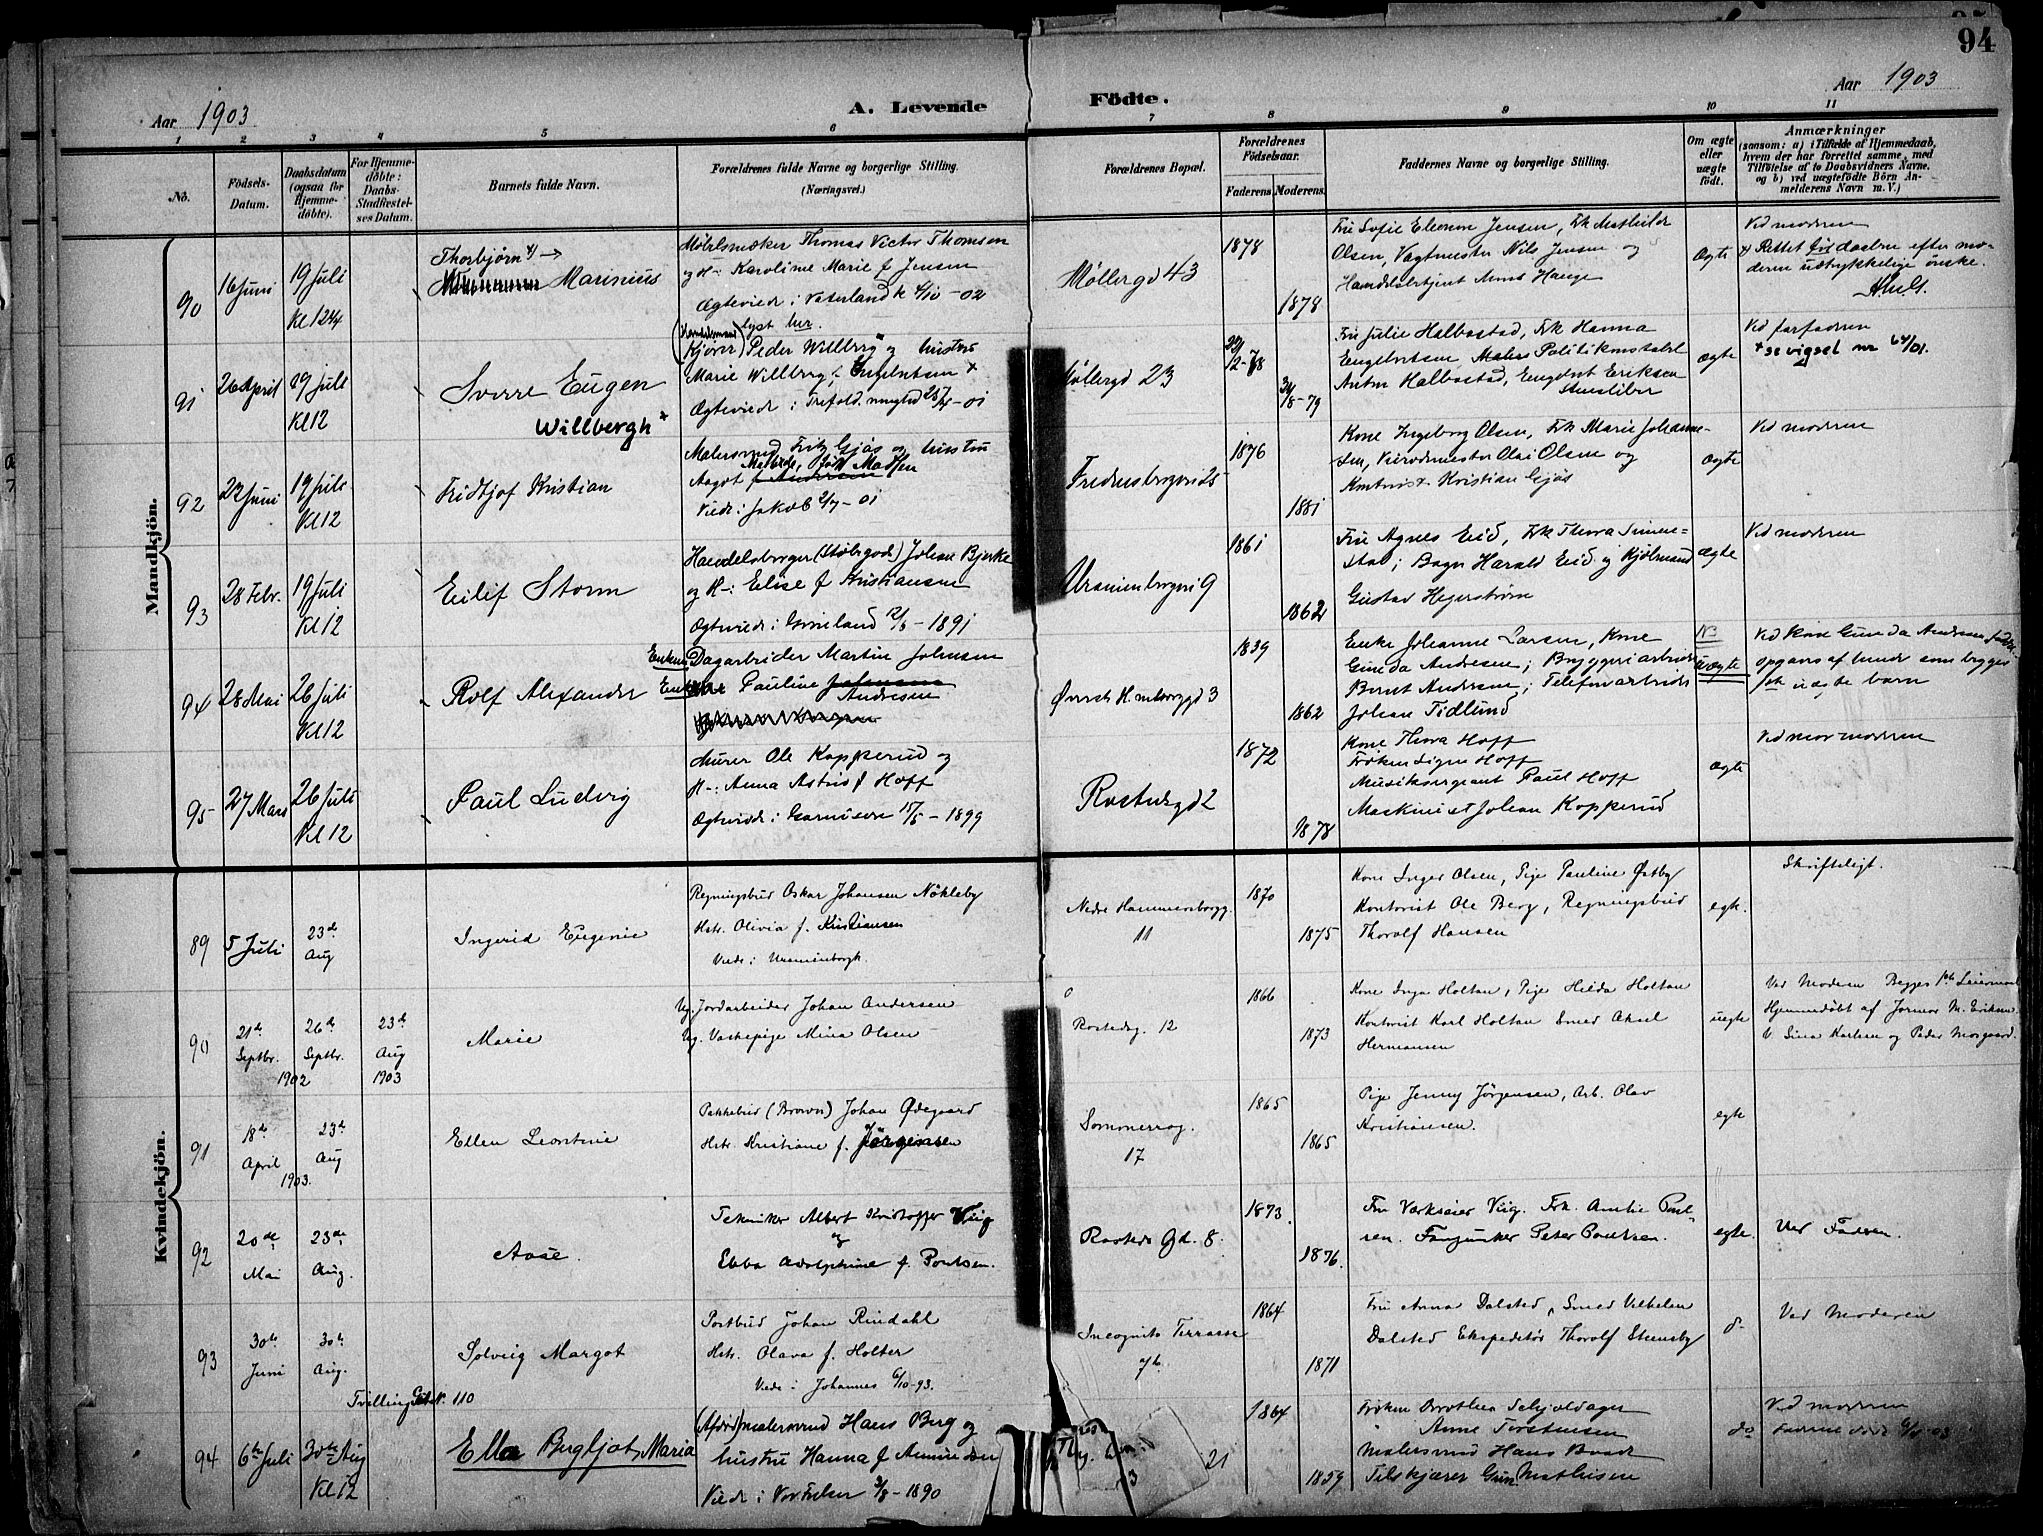 94
Aar 1903
A. Levende
Födte.
Aar 1903
1 2 3 4 5 6 7 8 9 10 11
No.
Födsels-
Datum.
Daabsdatum
(ogsaa for
Hjemme-
døbte).
For Hjemme-
døbte:
Daabs-
Stadfæstel-
ses Datum.
Barnets fulde Navn.
Forældrenes fulde Navne og borgerlige Stilling.
(Næringsvei.)
Forældrenes Bopæl.
Forældrenes
Fødselsaar.
Faderens Moderens.
Faddernes Navne og borgerlige Stilling.
Om ægte
eller
uægte
født.
Anmærkninger
(saasom: a) i Tilfælde af Hjemmedaab,
hvem der har forrettet samme, med
Tilföielse af to Daabsvidners Navne.
og b) ved uægtefödte Börn An-
melderens Navn m. V.)
Mandkjön.
90
16 Juni
19 Juli
Kl 12 3/4
Thorbjørn
Marinius
Møbelsnæker Thomas Victor Thomsen
og H-: Karoline Marie f Jensen
Ægteviede i Vaterland k 4/10-02
lyst her.
Møllergd 43
1878
1878
Fru Sofie Elenore Jensen, Frk Mathilde
Olsen, Vagtmester Nils Jensen og
Handelsbetjent Anna Hauge
Ægte
Ved moderen
Rettet før daaben efter mo-
derens udtrykkelige ønske.
91
26 April
19 Juli
Kl 12
Sverre Eugen
Willbergh +
(Handelsmand)
Kjører Peder Willberg og hustru
Marie Willberg f. Engebretsen +
Ægteviede i Trefold. mghd 25/4-01
Møllergd 23
22/2-78
31/8-79
Fru Julie Halbostad, Frk Hanna
Engebretsen Maler Politikonstabel
Anton Halbostad, Engebret Eriksen
Stenstiber
ægte
Ved farfaderen
+ se vigsel nr 64/01.
92
27 Juni
19 Juli
Kl 12
Fridtjof Kristian
Malersvend Fritz Gjøs og hustru
Mathilde, født Madsen
Aagot f Andersen
Viede i Jakob 2/7-01
Fredensborgvei 25
1876
1881
Kone Ingeborg Olsen, Frk Marie Johanne-
sen, Olai Olsen og
Kontorist Kristian Gjøs
ægte
Ved moderen
93
28 Febr.
19 Juli
Kl 12
Eilif Storm
Handelsborger (Støbegods) Johan Bjerke
og H-: Elise f Kristiansen
Ægteviede i Grøneland 12/5-1891
Uranienborgvei 9
1861
1862
Fru Agnes Eid, Frk Thora Simen-
stad; Bagr Harald Eid og Kjølmand
Gustav Hegerstrøm
ægte
Ved moderen
94
28 Mai
26 Juli
Kl 12
Rolf Alexander
Enkem. Dagarbeider Martin Johnsen
Enke Pauline Johansen
Andresen
Øvre Hammborggd 3
1839
1862
Enke Johanne Larsen, Kone
Gunda Andresen; Bryggeriarbeider
Bernt Andresen; Telefonarbeider
Johan Tidlund
NB
uægte
Ved Kone Gunda Andresen
opgives af hende som begges
1st uægte barn
95
27 Mars
26 Juli
Kl 12
Paul Ludvig
Murer Ole Kopperud og
H-: Anna Astrid f Hoff
Ægteviede i Garnisons 15/5-1899
Rostedsgd 2
1872
1878
Kone Thora Hoff
Frøken Signe Hoff
Musiksergeant Paul Hoff
Maskinist Johan Kopperud
ægte
Ved mormoderen
Kvindekjön.
89
5 Juli
23de
Aug
Ingerid Eugenie
Regningsbud Oskar Johansen Nökleby
Hstr. Olivia f. Kristiansen
Viede i Uranienborgk.
Nedre Hammersborgg.
11
1870
1875
Kone Inger Olsen, Pige Pauline Østby
Kontorist Ole Berg, Regningsbud
Thorolf Hansen
egte.
Skrifteligt.
90
21de
Septbr.
26de
Septbr.
1902
23de
Aug
1903
Marie
Ug. Jordarbeider Johan Andersen
Ug. Vaskepige Mina Olsen
Rostedsg. 12
1866
1873
Kone Inga Holtan, Pige Hilda Holtan
Kontorist Karl Holtan Smed Aksel
Hermansen
uegte
Ved Moderen Begges 1ste Leiermaal
Hjemmedöbt af Jormor M. Eriksen
V. Sina Karlsen og Peder Morgaard.
91
18de
April
23de
Aug
1903.
Ellen Leontine
Pakkebud (Brown) Johan Ødegaard
Hstr. Kristiane f. Jørgensen
Sommerrog.
17
1865
1865
Pige Jenny Jörgensen, Arb. Olav
Kristiansen.
egte
92
20de
Mai
23de
Aug.
Aase.
Tekniker Albert Kristoffer Viig
og
Ebba Adolphine f. Poulsen.
Rosteds Gd. 8.
1873.
1876.
Fru Værkseier Viig. Frk. Amalie Poul-
sen. Fanejunker Peter Poulsen.
egte.
Ved Faderen.
93
30te
Juni
30te
Aug.
Solveig Margot
Postbud Johan Rindahl
Hstr. Olava f. Holter
Viede i Johannes 6/10-93.
Incognito Terrasse
1864
1871
Fru Anna Dalsted, Smed Vilhelm
Dalsted Ekspeditör Thorolf Steensby
do
Ved Moderen
94
6te Juli
30te Aug
Kl 12
Tvilling 110
Ella Bergljot Maria
(Afdød) malersvend Hans Berg og
hustru Hanna f Amundsen
Viede i Vor Frelser 3/8-1890
21
1864
1859
Frøken Dorothea Schjoldager
Anne Torstensen
Malersvend Hans Braade
Tilskjærer Gun. Mathisen
do
Ved moderen